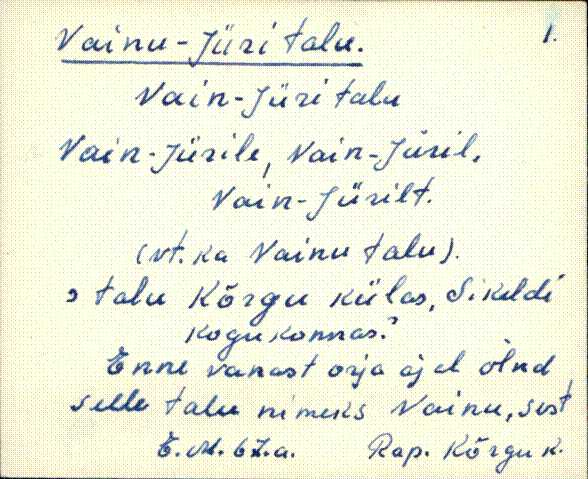 Vainu-Jüri talu. 1.
Vain-Jüri talu
Vain-Jürile, Vain-Jüril,
Vain-Jürilt.
(vt. ka Vainu talu).
, talu Kõrgu külas, Sikeldi
kogukonnas.'
Enne vanast orja ajal õlnd
selle talu nimeks Vainu, sest
E.M. 67.a. Rap. Kõrgu k.